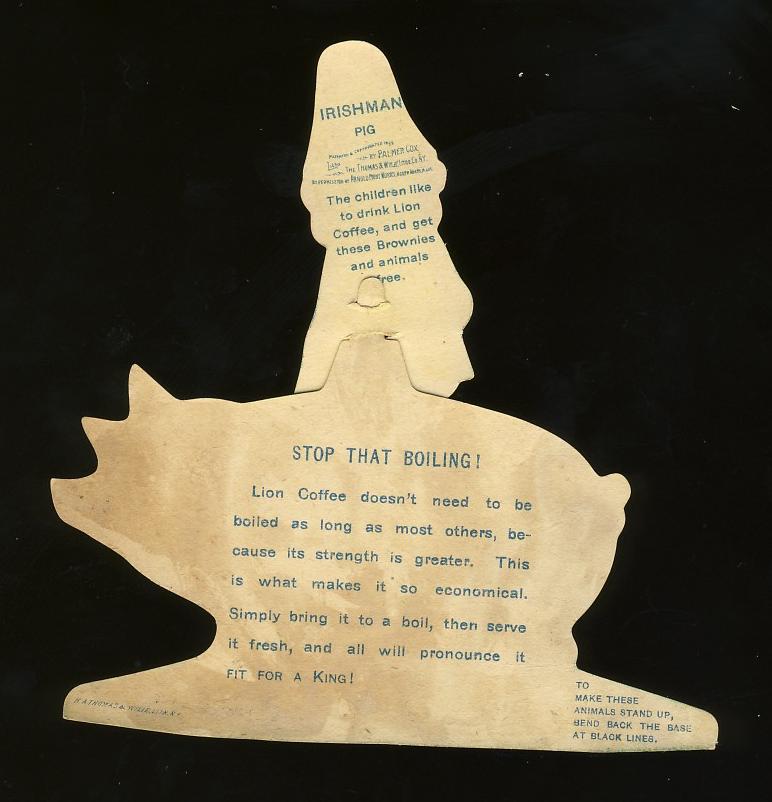 IRISHMAN
PIG
BY PALMER COX
THE THOMAS & WYLIE LITHO. CO. N.Y.
BY PERMISSION OF ARNOLD PRINT WORKS, NORTH ADAMS,
The children like
to drink Lion
Coffee, and get
these Brownies
and animals
free.
STOP THAT BOILING!
Lion Coffee doesn't need to be
boiled as long as most others, be-
cause its strength is greater. This
is what makes it so economical.
Simply bring it to a boil, then serve
it fresh, and all will pronounce it
FIT FOR A KING!
THOMAS & WYLIE
TO
MAKE THESE
ANIMALS STAND UP,
BEND BACK THE BASE
AT BLACK LINES.